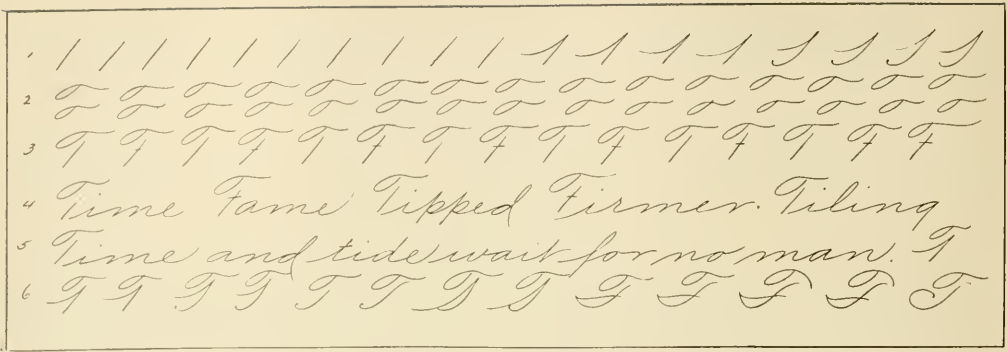 1
2
3 T F T F T F T F T F T F T F F
4 Time Fame Tipped Firmer. Tiling
5 Time and tide wait for no man. T
6 T T T T T T T T F F F F T